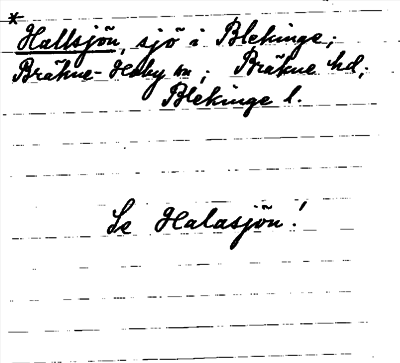 *
Hallsjön, sjö i Blekinge;
Bräkne-Hoby sn; Bräkne hd;
Blekinge l.
Se Halasjön!